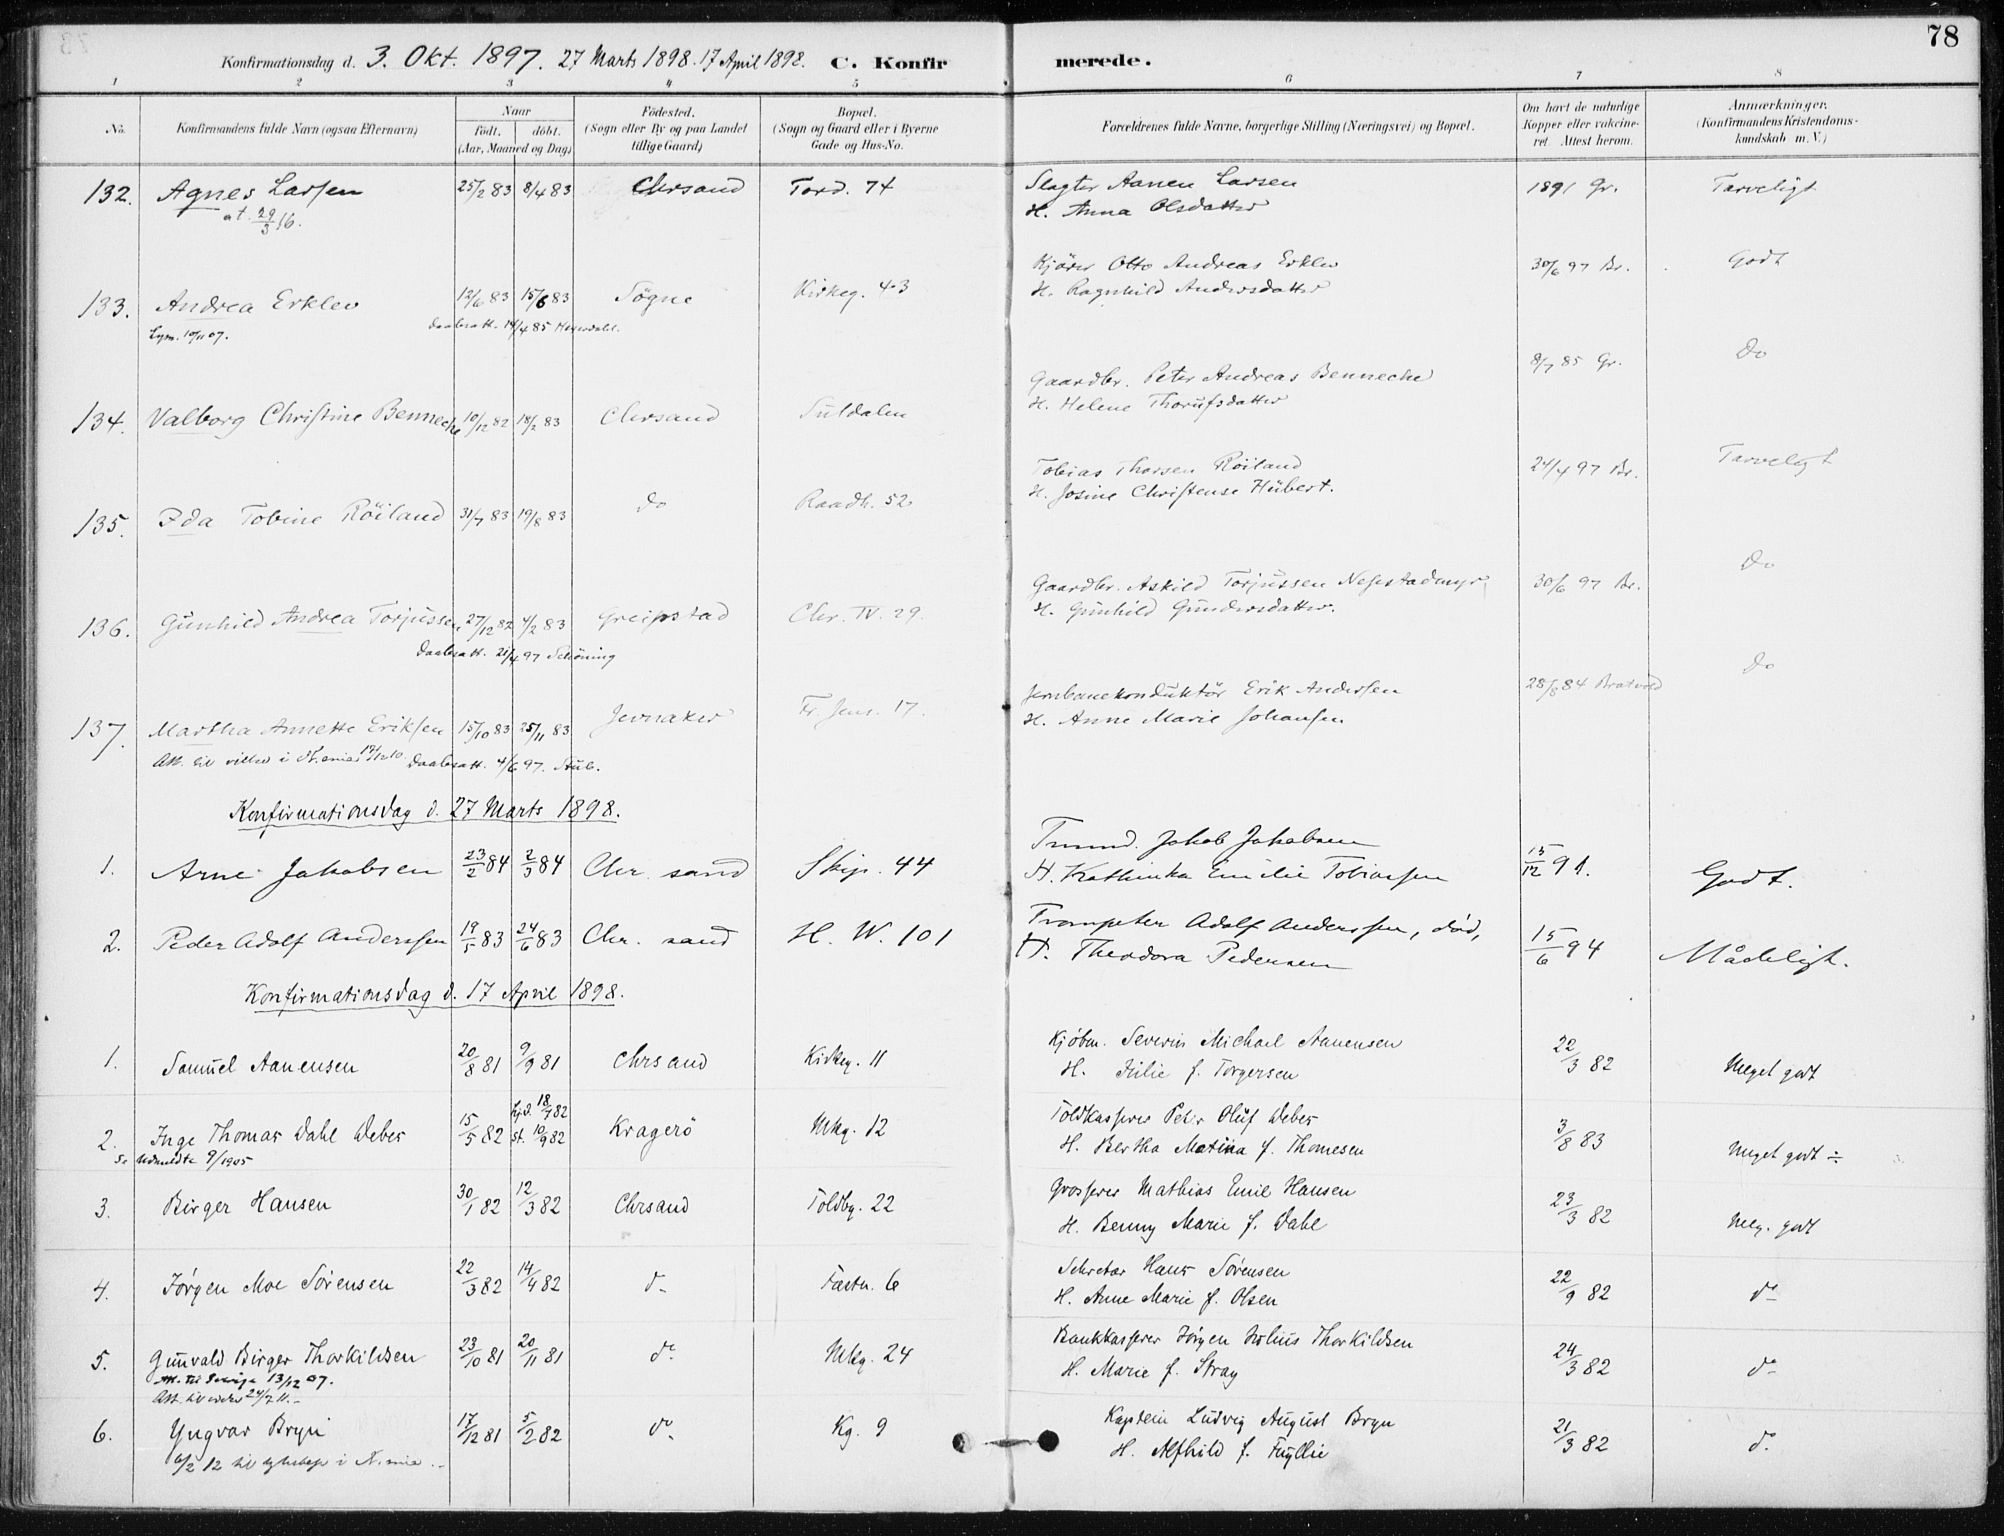 78
Konfirmationsdag d. 3. Okt. 1897. 27 Marts 1898. 17 April 1898. C. Konfirmerede.
1 2 3 4 5 6 7 8
No. Konfirmandens fulde Navn (ogsaa Efternavn) Naar födt. döbt. (Aar, Maaned og Dag) Födested. (Sogn eller By og paa Landet tillige Gaard) Bopæl. (Sogn og Gaard eller i Byerne Gade og Hus-No. Forældrenes fulde Navne, borgerlige Stilling (Næringsvei) og Bopæl. Om havt de naturlige Kopper eller vakcineret. Attest herom. Anmærkninger. (Konfirmandens Kristendomskundskab m. V.)
132. Agnes Larsen 25/2 83 8/4 83 Chrsand Tord. 74 Slagter Aanen Larsen 1891 Gr. Tarveligt
at. 29/3 16. H. Anna Olsdatter
133. Andrea Erklev 12/6 83 15/6 83 Sögne Kirkeg. 43 Kjörer Otto Andreas Erklev 30/6 97 Br. Godt
Daabsatt. 14/4 85 H. Ragnhild Andersdatter
134. Valborg Christine Benneche 10/12 82 18/2 83 Chrsand Suldalen Gaardbr. Peter Andreas Benneche 8/7 85 Gr. Do
H. Helene Thorufsdatter
135. Ida Tobine Röiland 31/7 83 19/8 83 Do Raadh. 52 Tobias Thorsen Röiland 24/4 97 Br. Tarveligt
H. Josine Christense Hübert.
136. Gunhild Andrea Torjussen 27/12 82 4/2 83 Greipstad Chr. IV. 29. Gaardbr. Askild Torjussen 30/6 97 Br. Do
Daabsatt. 21/4 97 Schöning H. Gunhild Gundersdatter.
137. Martha Annette Eriksen 15/10 83 25/11 83 Jevnaker Fr. Jens. 17. Jernbanekonduktör Erik Andersen 28/8 84 Bratvold Do
Daabsatt. 4/6 97. H. Anne Marie Johansen
Konfirmationsdag d. 27 Marts 1898.
1. Arne Jakobsen 23/2 84 2/3 84 Chr. sand Skip. 44 Jakob Jakobsen 15/12 91. Godt.
H. Kathinka Emilie Tobiassen
2. Peder Adolf Anderssen 19/5 83 24/6 83 Chr. sand H. W. 101 Trompeter Adolf Anderssen, död, 15/6 94 Mådeligt.
H. Theodora Pedersen
Konfirmationsdag d. 17 April 1898.
1. Samuel Aanensen 20/8 81 9/9 81 Chrsand Kirkeg. 11 Kjöbm. Severin Michael Aanensen 22/3 82 Meget godt
H. Julie f. Torgersen
2. Inge Thomas Dahl Weber 15/5 82 hjd. 18/7 82 st. 10/9 82 Kragerö Mkg. 12 Toldkasserer Peter Oluf Weber 3/8 83 Meget godt ÷
Se Udmeldte 9/1905 H. Bertha Matina f. Thomesen
3. Birger Hansen 30/1 82 12/3 82 Chrsand Toldbg. 22 Grosserer Mathias Emil Hansen 23/3 82 Meg. godt
H. Benny Marie f. Dahl
4. Jörgen Moe Sörensen 22/3 82 14/4 82 do Fastn. 6 Sekretær Hans Sörensen 22/9 82 do
H. Anne Marie f. Olsen
5. Gunvald Birger Thorkildsen 23/10 81 20/11 81 do Mkg. 24 Bankkasserer Jörgen Julius Thorkildsen 24/3 82 do
Att. til 13/12 07. H. Marie f. Stray
6. Yngvar Bryn 17/12 81 5/2 82 do Kg. 9 Kaptein Ludvig August Bryn 21/3 82 do
H. Alfhild f.